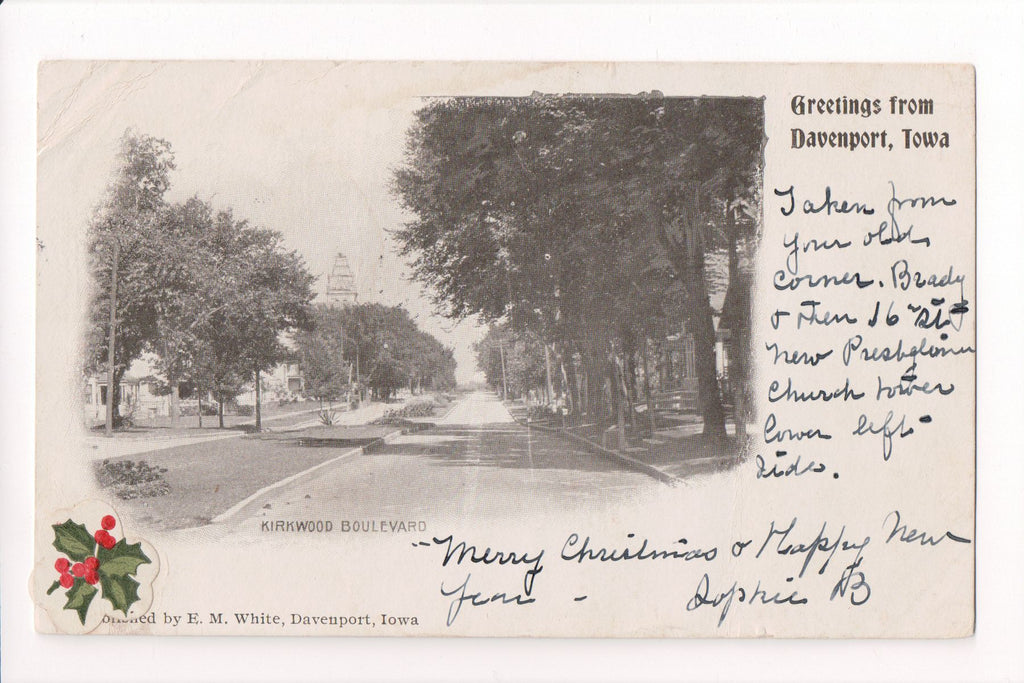 Greetings from
Davenport, Iowa
Taken from
your old
corner. Brady
& then 16 St
new Presbyterian
Church tower
Lower left
side.
KIRKWOOD BOULEVARD
"Merry Christmas & Happy New
Year - Sophie B
by E. M. White, Davenport, Iowa